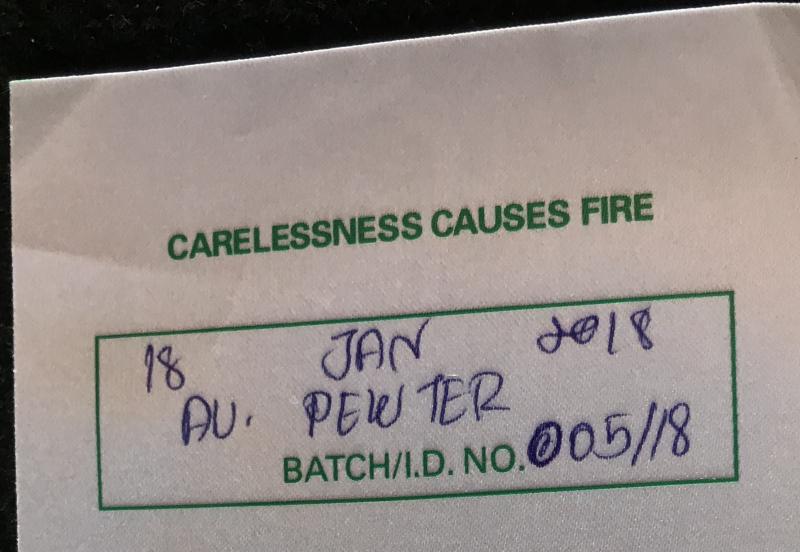 CARELESSNESS CAUSES FIRE
18 JAN 2018
AU. PEWTER
BATCH/I.D. NO. 005//18